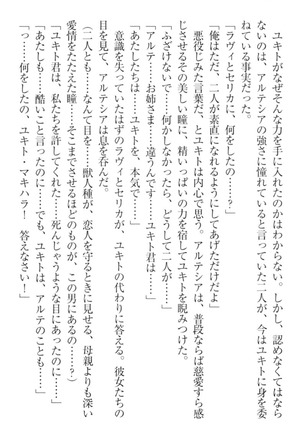 ユキトがなぜそんな力を手に入れたのかはわからない。しかし、認めなくてはなら
ないのは、アルテシアの強さに憧れていると言っていた二人が、今はユキトに身を委
ねている事実だった。
「ラヴィとセリカに、何をしたの……？」
「俺はただ、二人が素直になれるようにしてあげただけだよ」
　悪役じみた言葉だ、とユキトは内心で思う。アルテシアは、普段ならば慈愛すら感
じさせるその美しい瞳に、精いっぱいの力を宿してユキトを睨みつけた。
「ふざけないで……何かしなかったら、どうして二人が……」
「アルテ……お姉さま……違うんです……ユキト君は……」
「あたしたちは……ユキトを、本気で……」
　意識を失っていたはずのラヴィとセリカが、ユキトの代わりに答える。彼女たちの
目を見て、アルテシアは息を呑んだ。
（二人とも……なんて目を……獣人種が、恋人を守るときに見せる、母親よりも深い
愛情をたたえた瞳……そこまでさせるほどのものが、この男にあるの……？）
「ユキト君は、私たちを許してくれた……死んじゃうような目にあったのに……」
「あたしも……酷いこと言ったのに……でも、ユキトは、アルテのことも……」
「っ……何をしたの、ユキト・マキハラ！　答えなさい！」